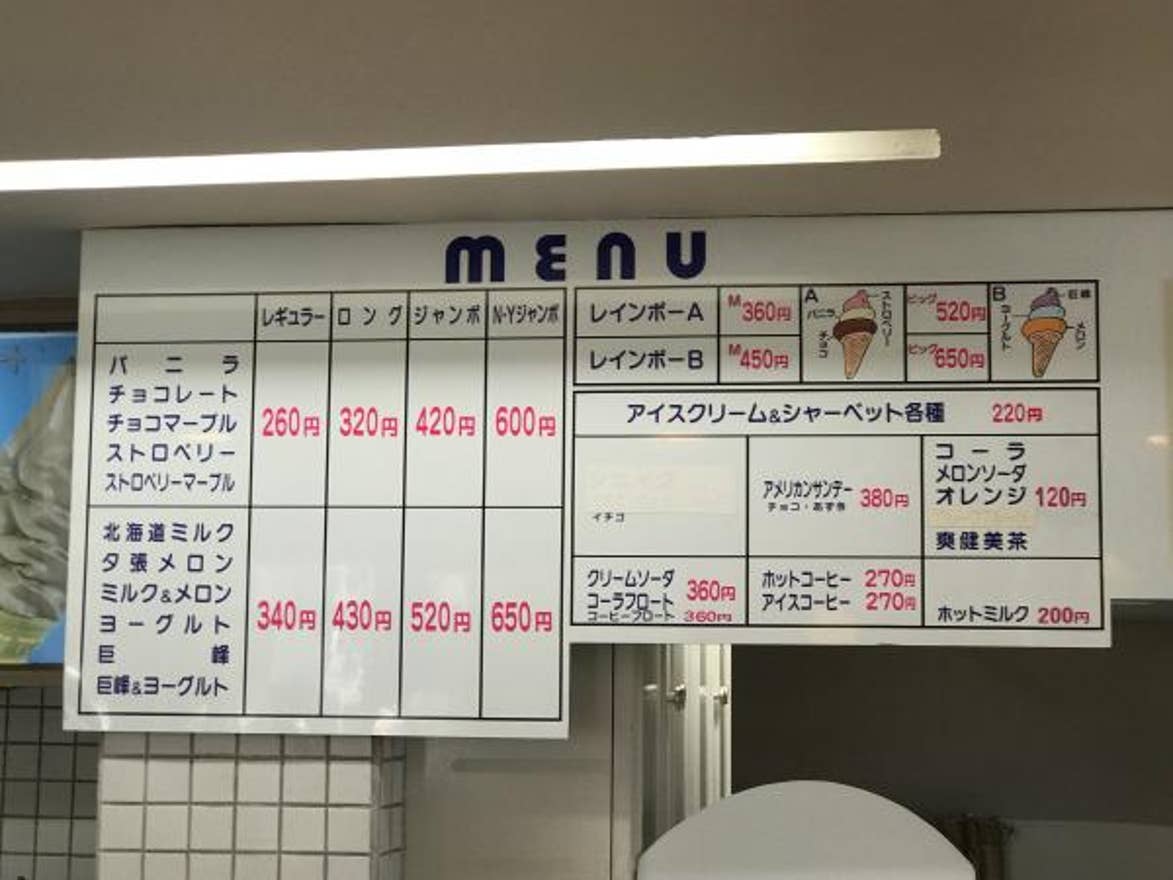 MENU
レギュラー ロング ジャンボ N・Yジャンボ
バニラ
チョコレート
チョコマーブル
ストロベリー
ストロベリーマーブル
260円 320円 420円 600円
北海道ミルク
夕張メロン
ミルク&メロン
ヨーグルト
巨峰
巨峰&ヨーグルト
340円 430円 520円 650円
レインボーA M360円 ビッグ520円
レインボーB M450円 ビッグ650円
A
ストロベリー
バニラ
チョコ
B
巨峰
ヨーグルト
メロン
アイスクリーム&シャーベット各種 220円
イチゴ
アメリカンサンデー
チョコ・あずき
380円
コーラ
メロンソーダ
オレンジ 120円
爽健美茶
クリームソーダ
コーラフロート 360円
コーヒーフロート 360円
ホットコーヒー 270円
アイスコーヒー 270円
ホットミルク 200円